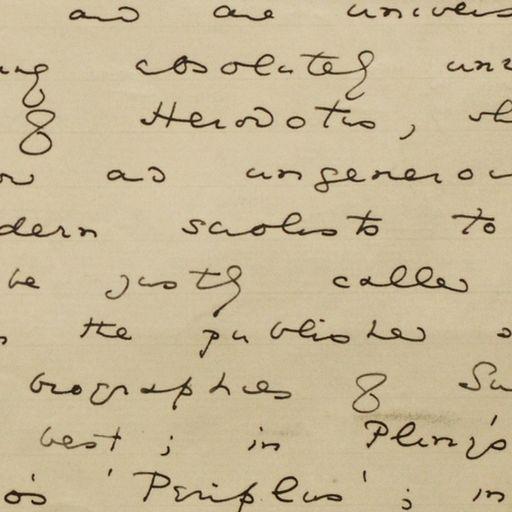 and are univers
absolutely
of Herodotus,
as ungenerou
dern scholists to
be justly called
the published
biographies of Su
best; in Pliny's
o's 'Periplus'; in